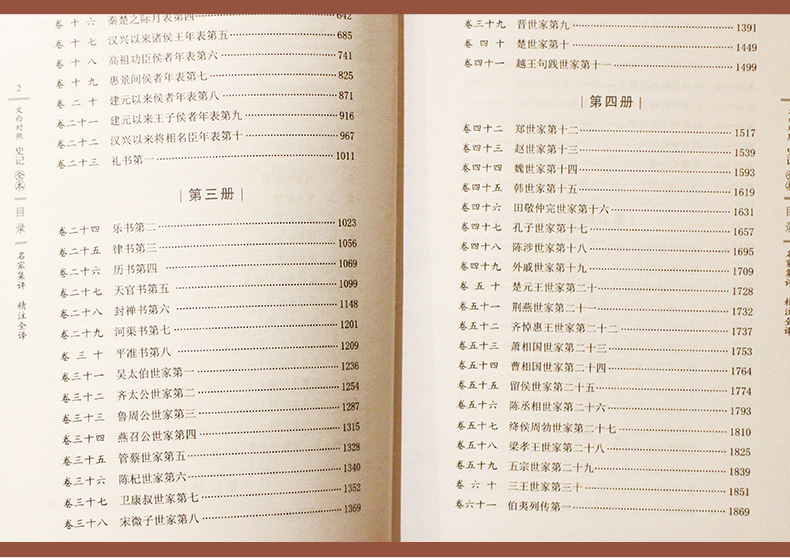 卷十六 秦楚之际月表第四 642
卷十七 汉兴以来诸侯王年表第五 685
卷十八 高祖功臣侯者年表第六 741
卷十九 惠景间侯者年表第七 825
卷二十 建元以来侯者年表第八 871
卷二十一 建元以来王子侯者年表第九 916
卷二十二 汉兴以来将相名臣年表第十 967
卷二十三 礼书第一 1011
第三册
卷二十四 乐书第二 1023
卷二十五 律书第三 1056
卷二十六 历书第四 1069
卷二十七 天官书第五 1099
卷二十八 封禅书第六 1148
卷二十九 河渠书第七 1201
卷三十 平准书第八 1209
卷三十一 吴太伯世家第一 1236
卷三十二 齐太公世家第二 1254
卷三十三 鲁周公世家第三 1287
卷三十四 燕召公世家第四 1315
卷三十五 管蔡世家第五 1328
卷三十六 陈杞世家第六 1340
卷三十七 卫康叔世家第七 1352
卷三十八 宋微子世家第八 1369
2
文白对照 史记 全本 目录 名家集评 精注全译
卷三十九 晋世家第九 1391
卷四十 楚世家第十 1449
卷四十一 越王句践世家第十一 1499
第四册
卷四十二 郑世家第十二 1517
卷四十三 赵世家第十三 1539
卷四十四 魏世家第十四 1593
卷四十五 韩世家第十五 1619
卷四十六 田敬仲完世家第十六 1631
卷四十七 孔子世家第十七 1657
卷四十八 陈涉世家第十八 1695
卷四十九 外戚世家第十九 1709
卷五十 楚元王世家第二十 1728
卷五十一 荆燕世家第二十一 1732
卷五十二 齐悼惠王世家第二十二 1737
卷五十三 萧相国世家第二十三 1753
卷五十四 曹相国世家第二十四 1764
卷五十五 留侯世家第二十五 1774
卷五十六 陈丞相世家第二十六 1793
卷五十七 绛侯周勃世家第二十七 1810
卷五十八 梁孝王世家第二十八 1825
卷五十九 五宗世家第二十九 1839
卷六十 三王世家第三十 1851
卷六十一 伯夷列传第一 1869